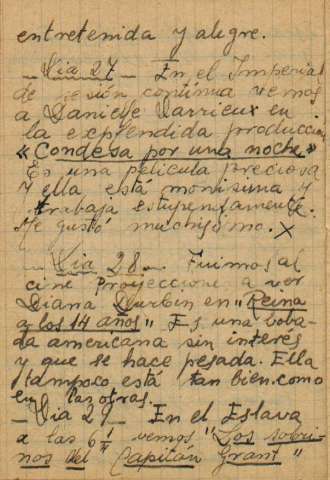 entretenida y alegre.
_ Dia 27 _ En el Imperial
de sesión continua vemos
a Danielle Darrieux en
la esprendida producción
«Condesa por una noche»
Es una pelicula preciosa
y ella está monisima y
trabaja estupendamente.
Me gusto muchisimo. X
_ Dia 28 _ Fuimos al
cine Proyecciones a ver
Diana Durbin en "Reina
a los 14 años" Es una boba-
da americana sin interés
y que se hace pesada. Ella
tampoco está tan bien como
en las otras.
_ Dia 29 _ En el Eslava
a las 6 1/2 vemos "Los sobri-
nos del Capitán Grant"